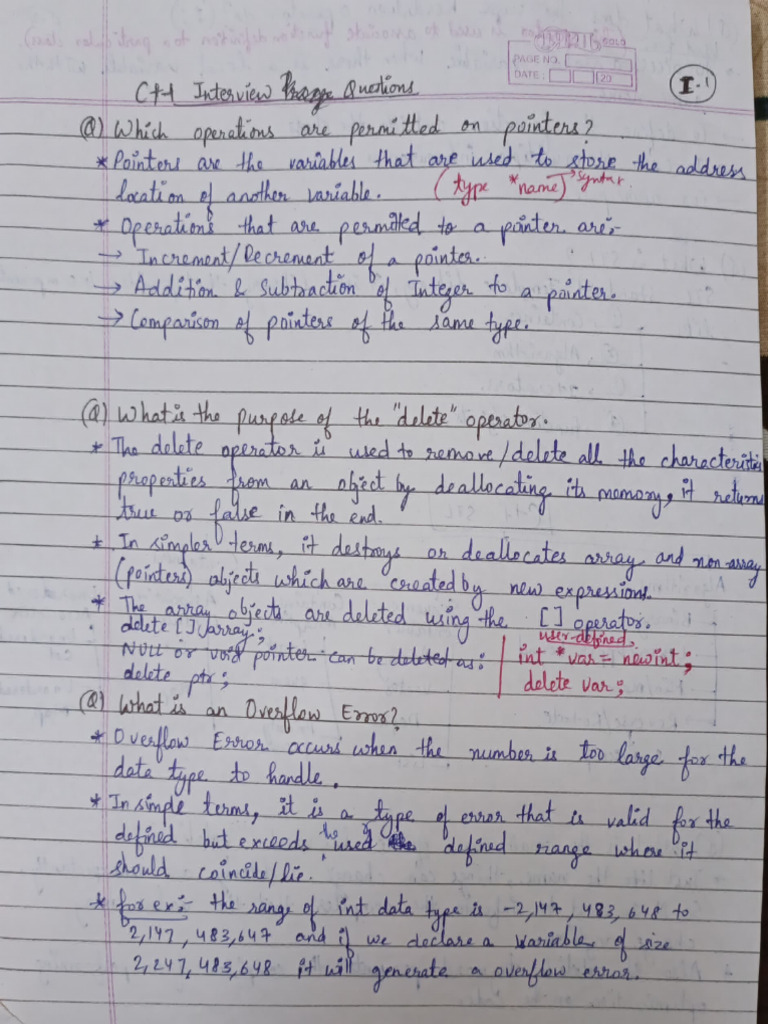 PAGE NO.
DATE: 20
I.1
C++ Interview Questions
(Q) Which operations are permitted on pointers?
* Pointers are the variables that are used to store the address
location of another variable. (type *name) → syntax
* Operations that are permitted to a pointer are:-
→ Increment/Decrement of a pointer.
→ Addition & Subtraction of Integer to a pointer.
→ Comparison of pointers of the same type.
(Q) What is the purpose of the "delete" operator.
* The delete operator is used to remove/delete all the characteristics
properties from an object by deallocating its memory, it returns
true or false in the end.
* In simpler terms, it destroys or deallocates array and non-array
(pointers) objects which are created by new expressions.
* The array objects are deleted using the [] operator.
delete [] array;
NULL or void pointer can be deleted as:
delete ptr;
user-defined,
int *var = new int;
delete var;
(Q) What is an Overflow Error?
* Overflow Error occurs when the number is too large for the
data type to handle.
* In simple terms, it is a type of error that is valid for the
defined but exceeds the used defined range where it
should coincide/lie.
* for ex:- the range of int data type is -2,147,483,648 to
2,147,483,647 and if we declare a variable of size
2,247,483,648 it will generate a overflow error.